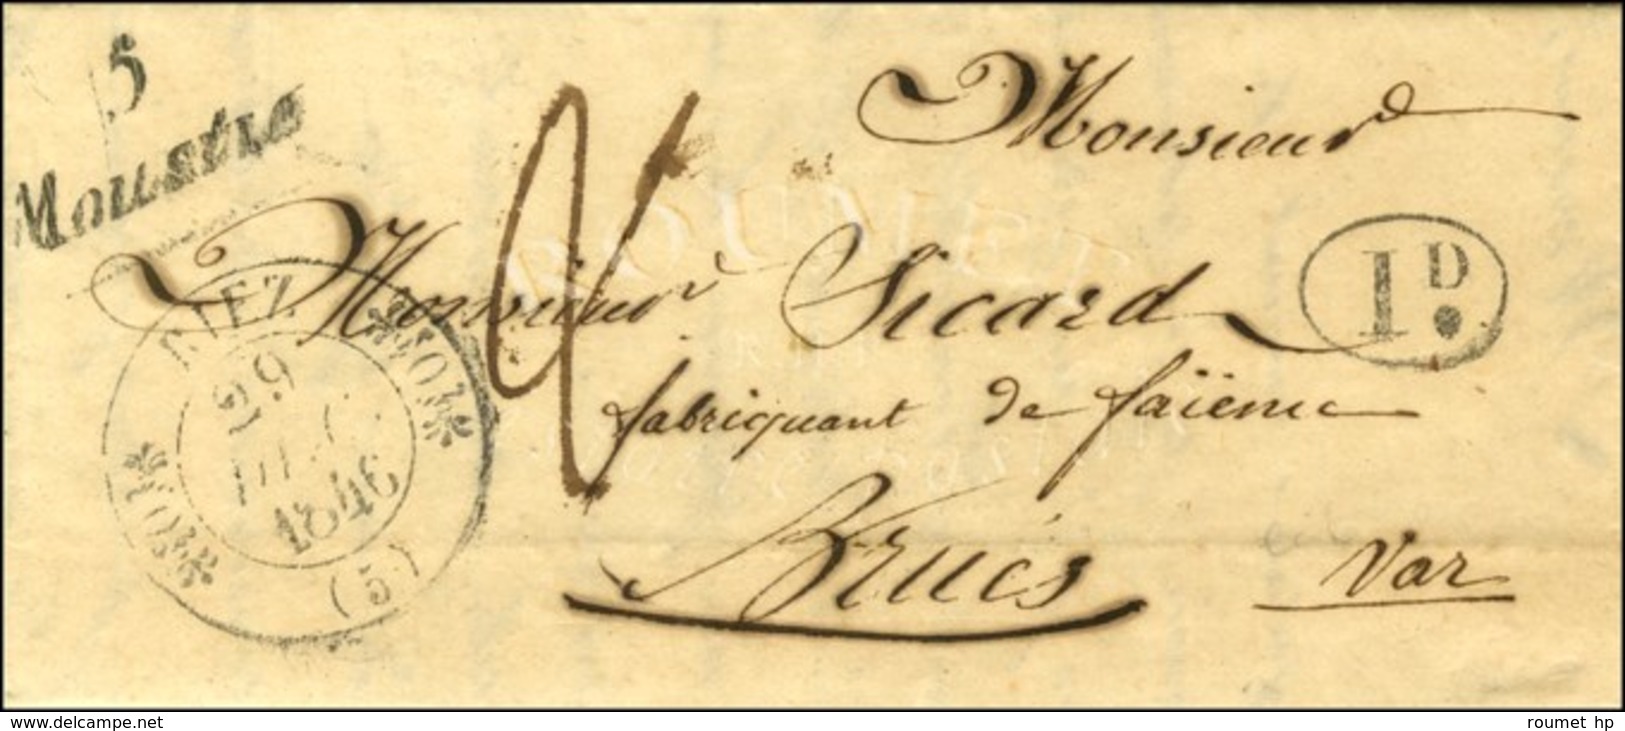 5
Moustie
Monsieur
Monsieur Sicard
1D.
fabriquant de faïence
Brués
Var
RIEZ
29
DEC
1846
(5)
ROUMET
www.delcampe.net
roumet hp